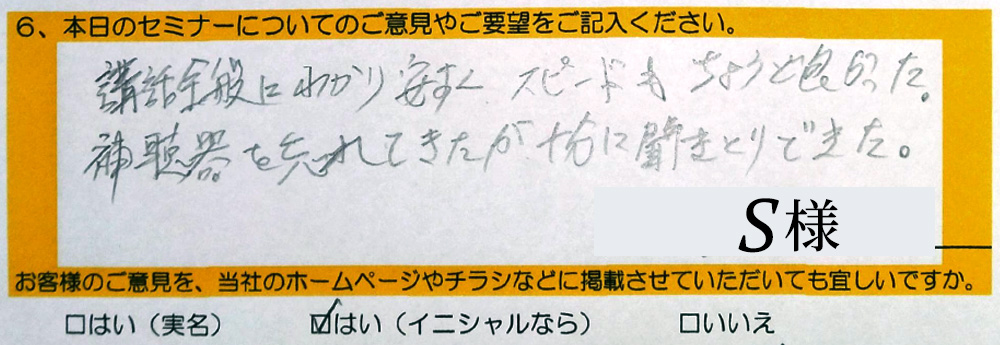 6、本日のセミナーについてのご意見やご要望をご記入ください。
講話全般にわかり安すく スピードも ちょうど良かった。
補聴器を忘れてきたが 十分に聞きとりできた。
S様
お客様のご意見を、当社のホームページやチラシなどに掲載させていただいても宜しいですか。
□はい（実名） ☑はい（イニシャルなら） □いいえ